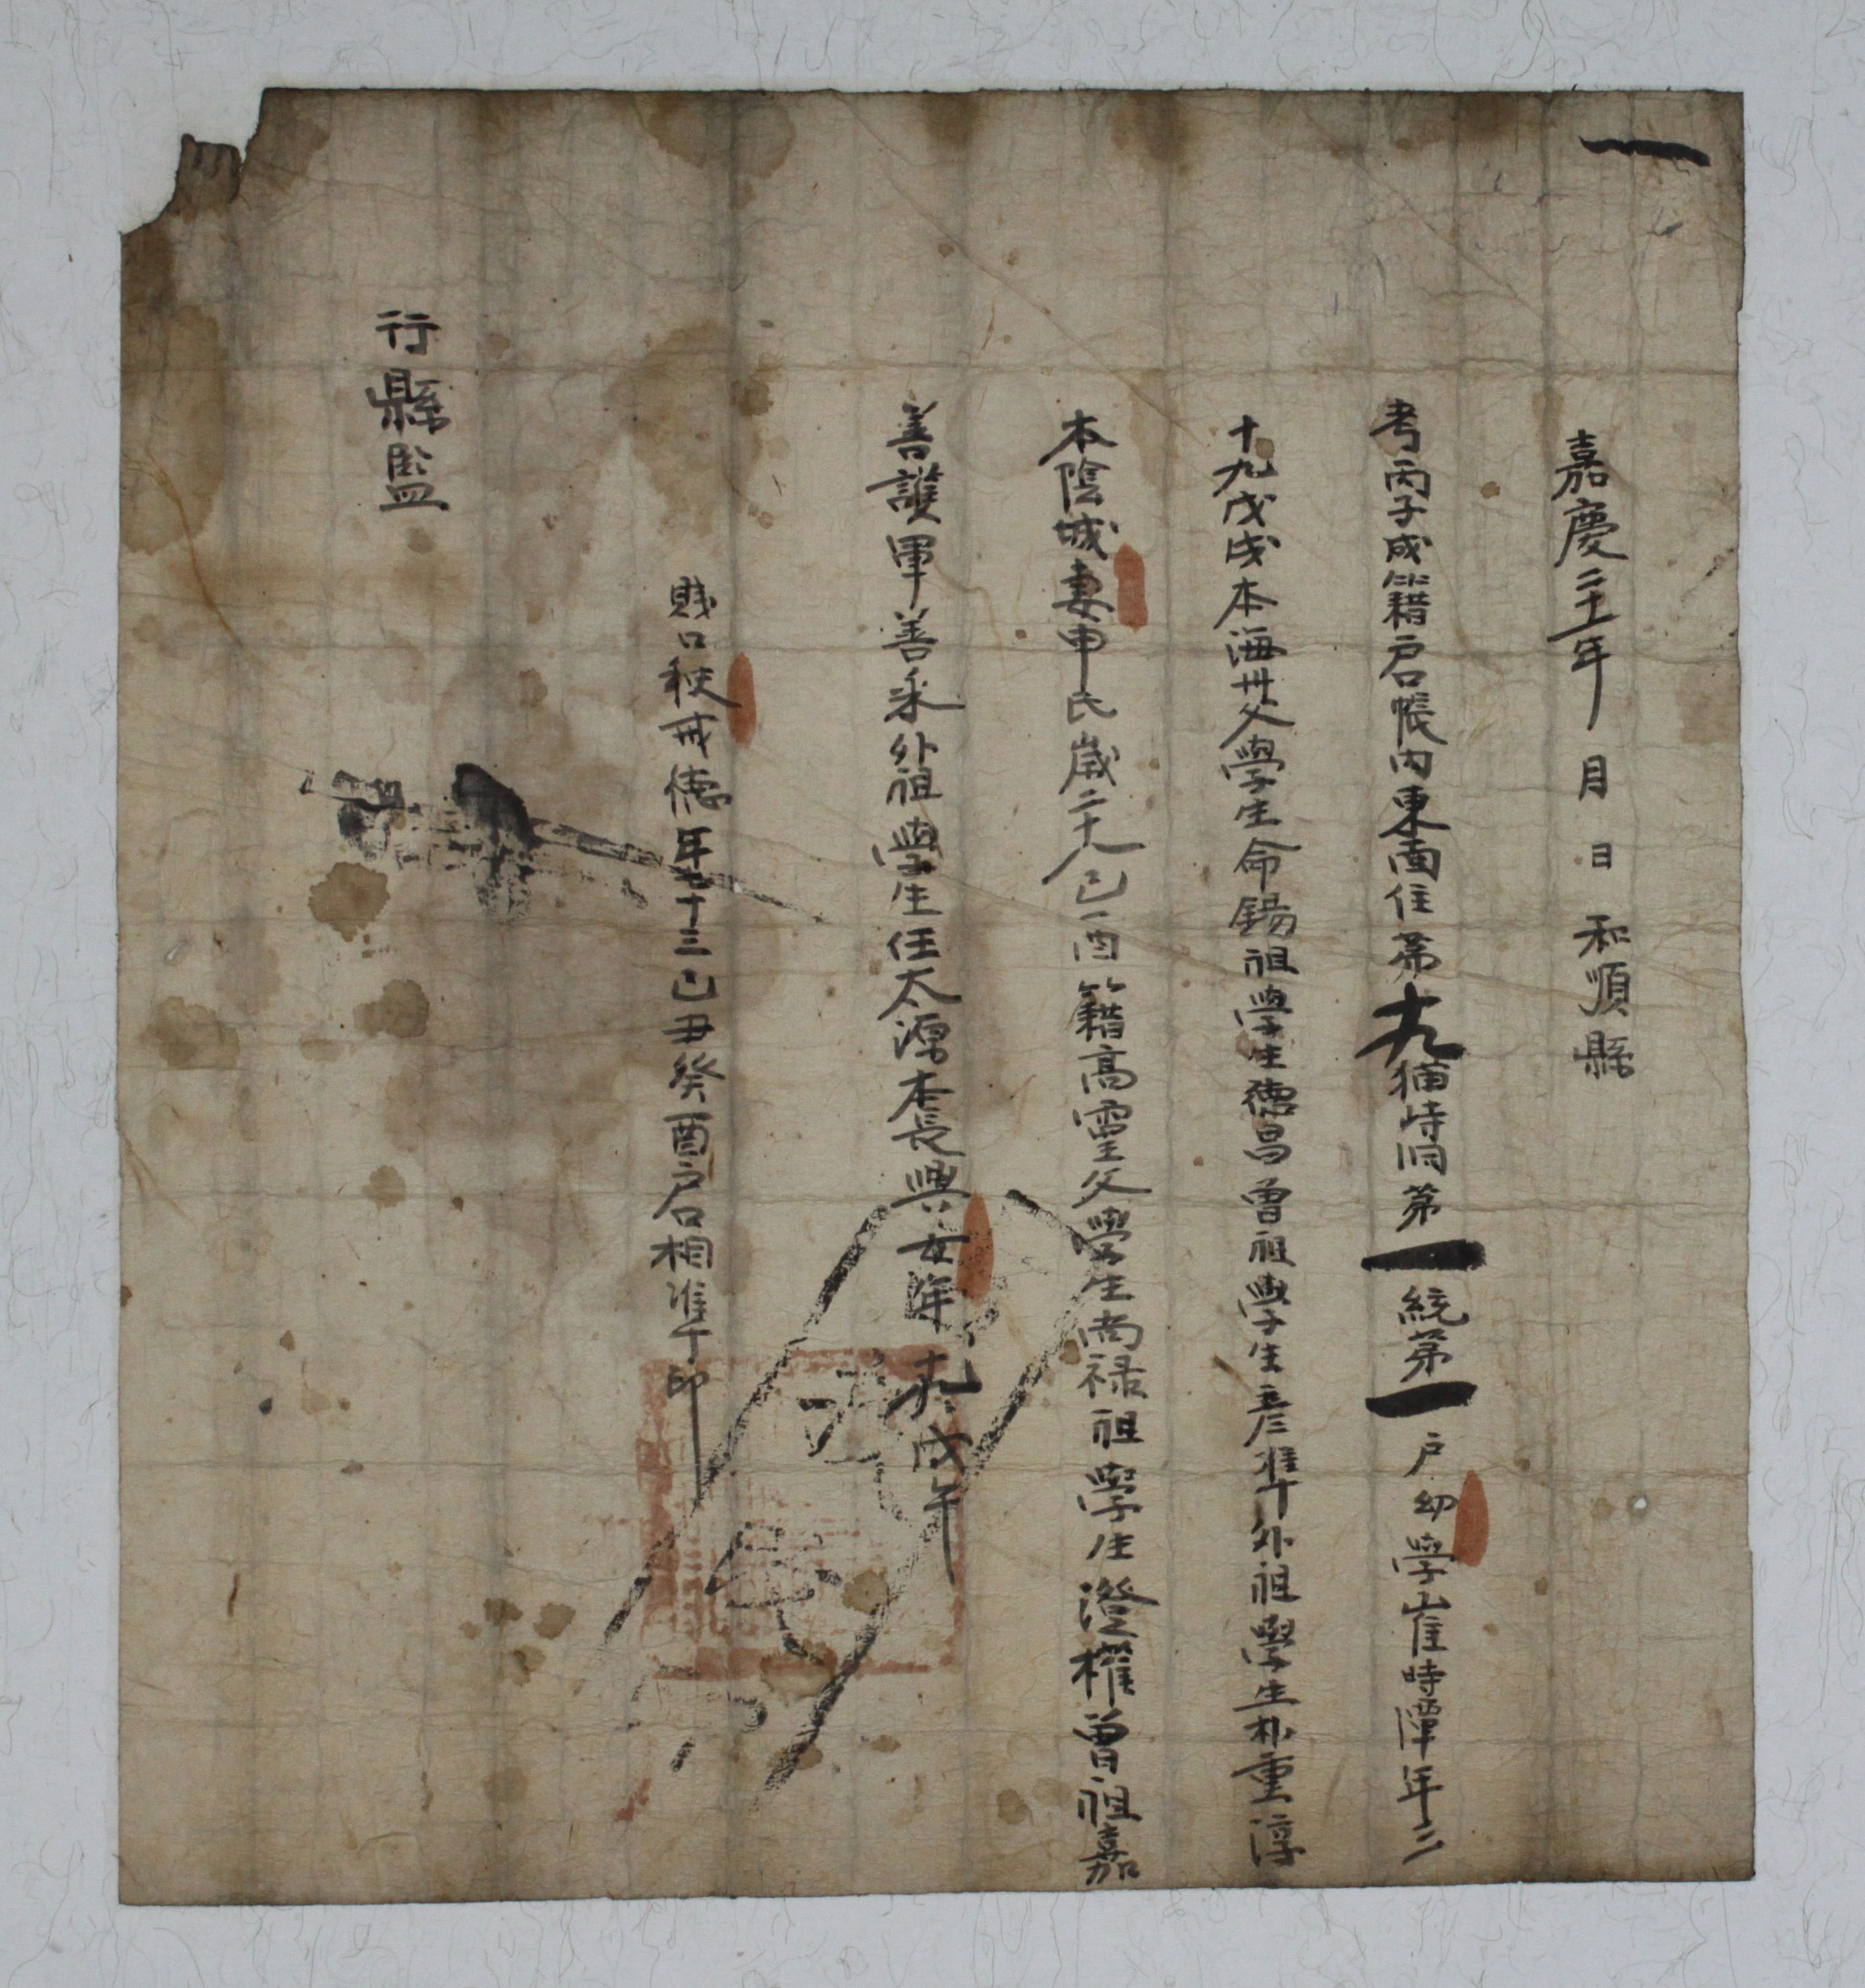 一
嘉慶二十一年 月 日 和順縣
考丙子成籍戶帳內東面住第十九猫峙洞第一統第一戶幼學崔時潭年三
十九戊戌本海州父學生命錫祖學生德昌曾祖學生彦準外祖學生朴重淳
本陰城妻申氏歲二十八己酉籍高靈父學生尚祿祖學生澄權曾祖嘉
善護軍善采外祖學生任太源本長興女年十九戊午
賤口秩戒德年七十三己丑癸酉戶口相准印
行縣監